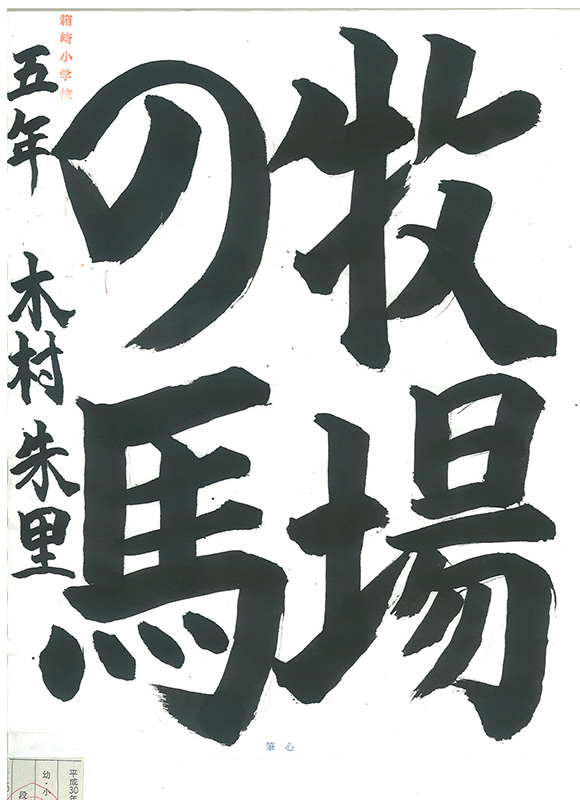 牧場
の馬
箱崎小学校
五年 木村朱里
筆心
平成30年
幼・小
段